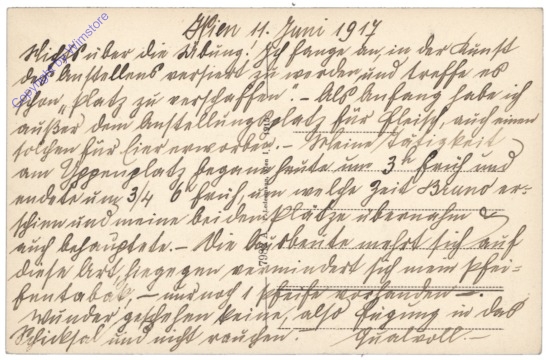 Wien 11. Juni 1917
Nichts über die Übung! Ich fange an, in der Kunst
des Anstellens versiert zu werden, und treffe es
schon, "Platz zu verschaffen". – Als Anfang habe ich
außer dem Anstellungsplatz für Fleisch, auch einen
solchen für Eier erworben. – Meine Tätigkeit
am Yppenplatz begann heute um 3h früh und
endete um 3/4 6 früh, um welche Zeit Bruno er-
schien und meine beiden Plätze übernahm &
auch behauptete. – Die Ausbeute mehrt sich auf
diese Art, hingegen vermindert sich mein Pfei-
fentabak, – nur noch 1 Pfeife vorhanden –.
Wunder geschehen keine, also Fügung in das
Schicksal und nicht rauchen. – Qualvoll. –
Copyright by Wimstore